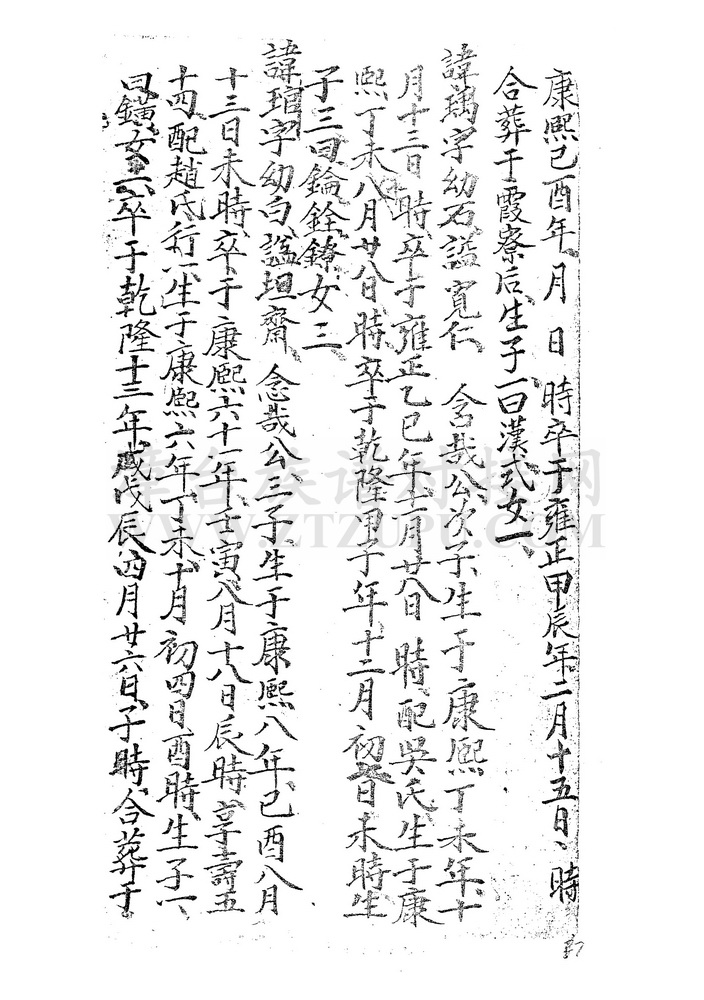 康熙己酉年月日時卒于雍正甲辰年二月十五日、時
合葬于霞寮后、生子一曰漢式女一、
諱瑀字幼石、謚寬仁 念哉公次子、生于康熙丁未年、十
月十三日時、卒于雍正乙巳年十一月廿八日時、配吳氏、生于康
熙丁未八月廿八日、時卒于乾隆甲子年、十二月初日未時生
子三曰鑰、銓、鐐、女三、
諱琯字幼白、謚坦齋 念哉公、三子、生于康熙八年、己酉八月
十三日未時、卒于康熙六十一年、壬寅、八月十八日辰時、享壽五
十四、配趙氏、行一、生于康熙六年丁未、十月初四日酉時、生子一、
曰鐄、女二、卒于乾隆十三年、戊辰、四月廿六日、子時、合葬于
WWW.ZTZUPU.COM